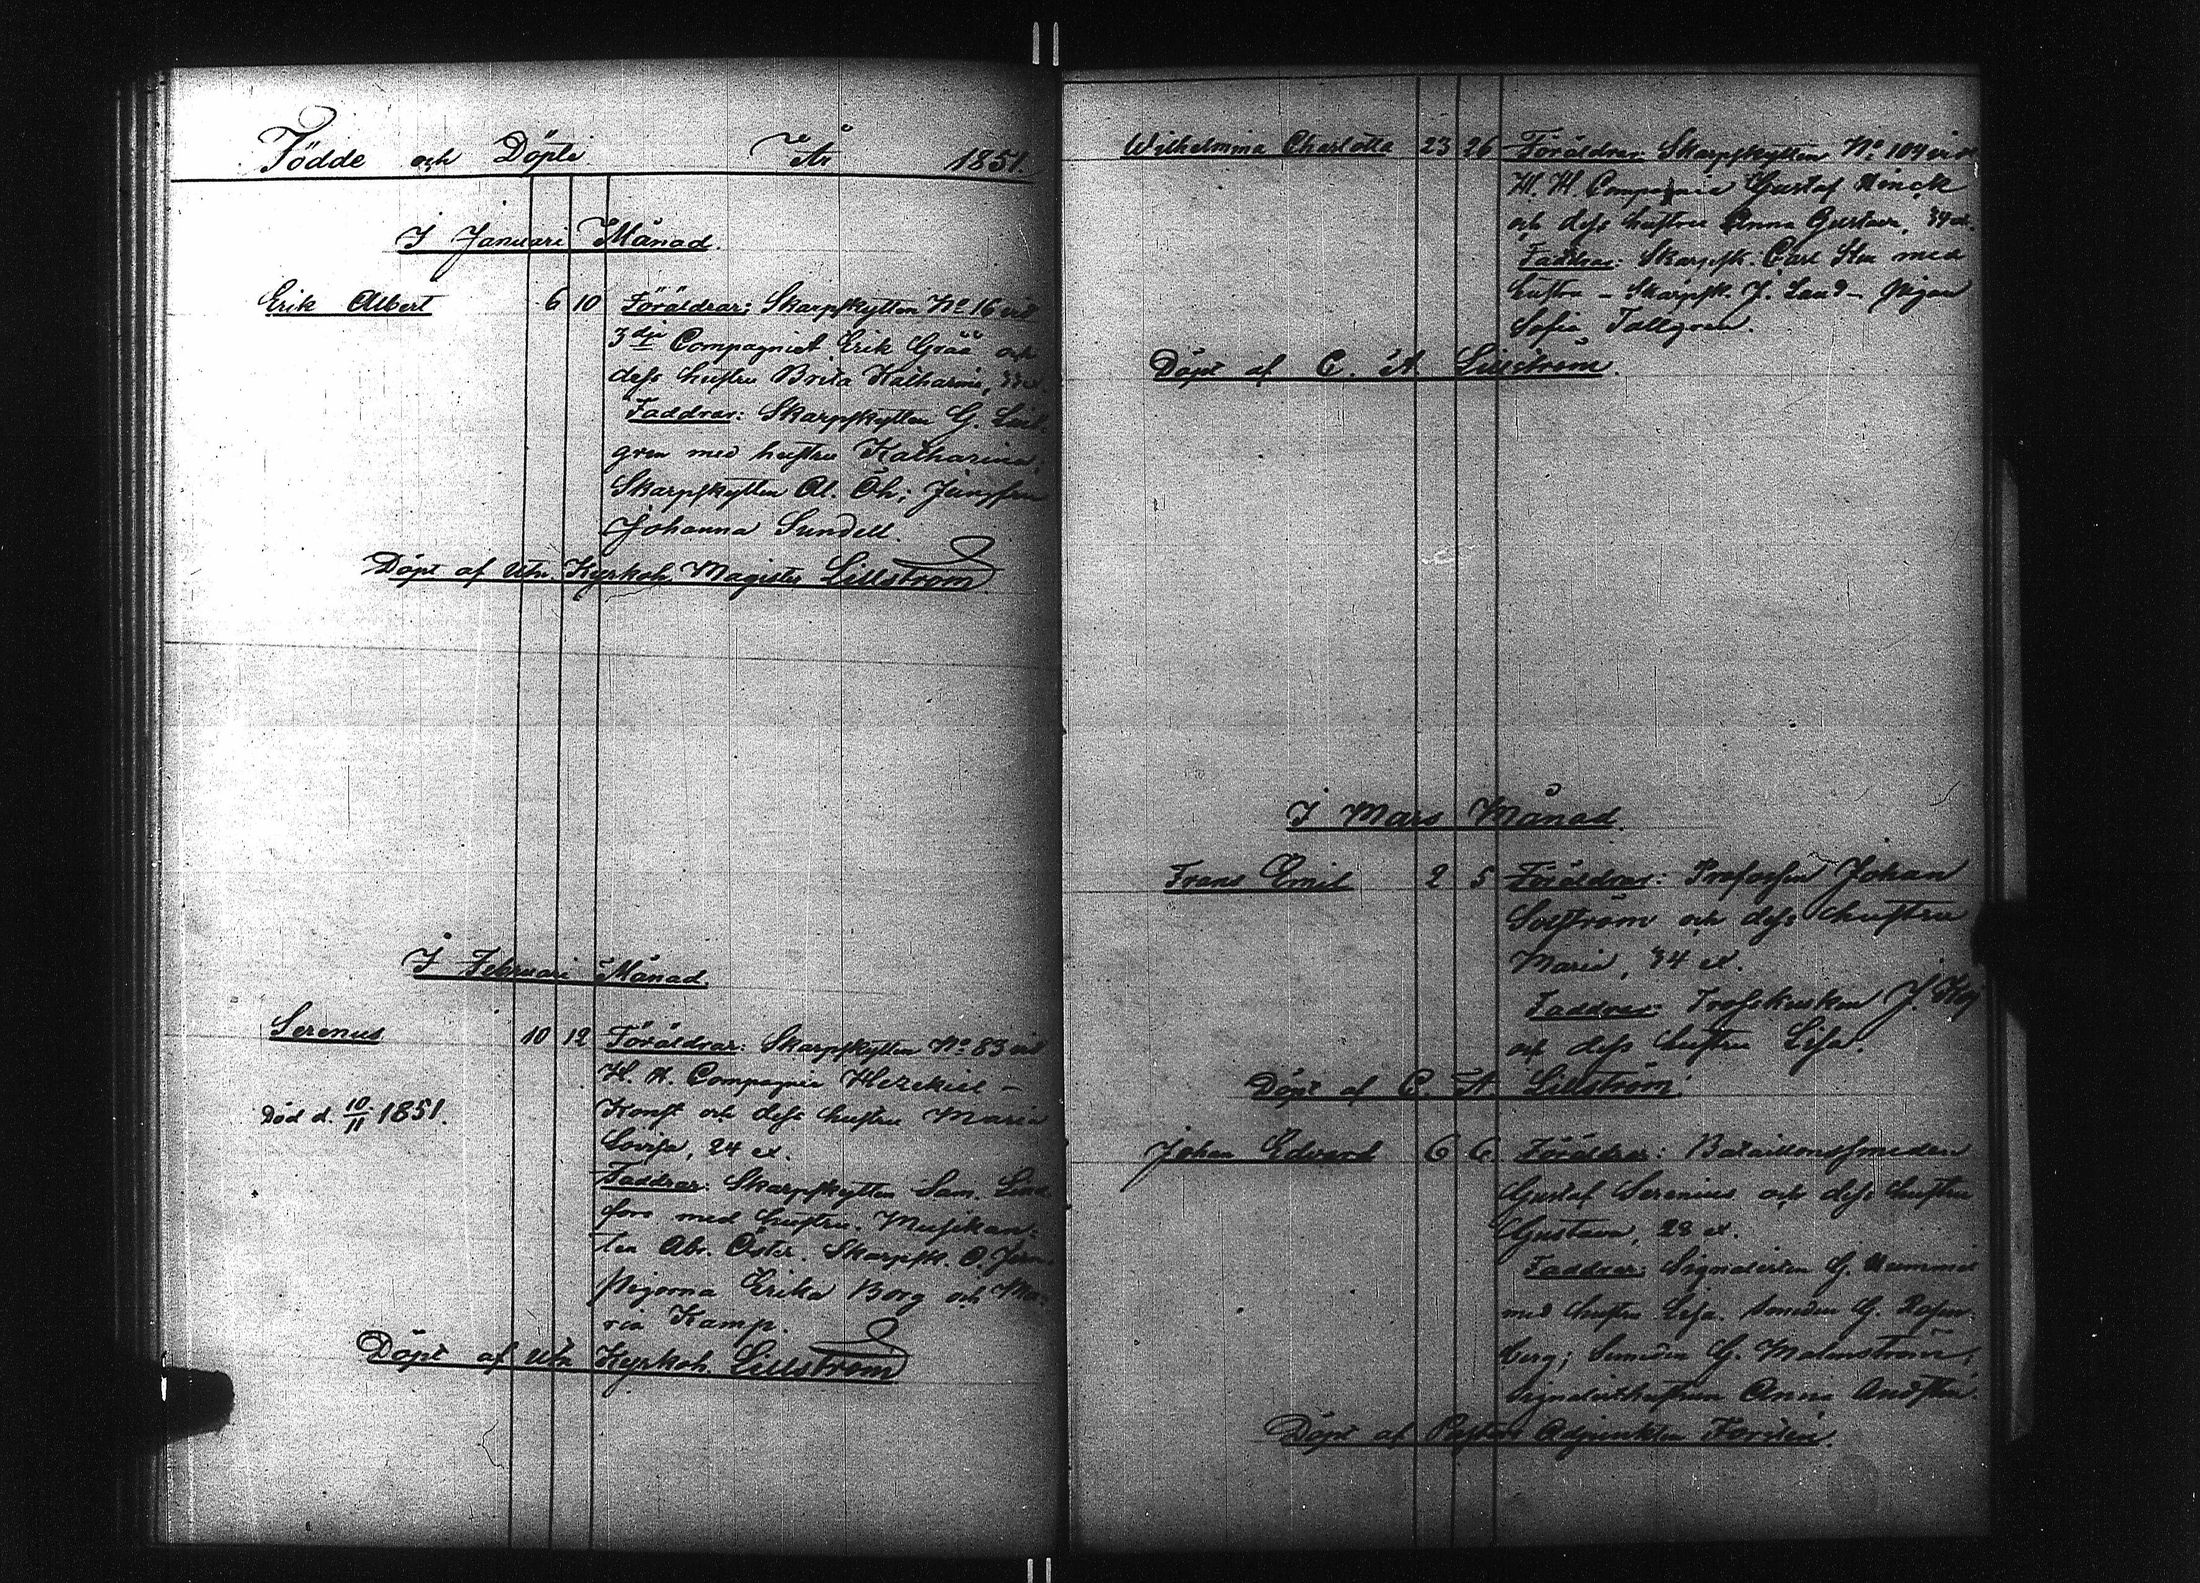 Födde och Döpte År 1851.
I Januari Månad.
Erik Albert 6 10 Föräldrar: Skarpskytten No 16 vid
3dje Compagniet Erik Grää och
dess hustru Brita Katharina, 33
Faddrar: Skarpskytten G.
gren med hustru Katharina,
Skarpskytten Al. Öh; Jungfru
Johanna Sundell.
Döpt af Utn. Kyrkoh. Magister Lillström
I Februari Månad.
Serenus 10 12 Föräldrar: Skarpskytten No 83 vid
H. H. Compagnie Hezekiel
Konst och dess hustru Maria
Död d. 10/11 1851.
Lovisa, 24 et.
Faddrar: Skarpskytten Sam. Lind
fors med hustru. Musikan-
ten Abr. Öster. Skarpsk. O.
Pigorna Erika Borg och Ma-
ria Kamp.
Döpt af Utn Kyrkoh. Lillström
Wilhelmina Charlotta 23 26 Föräldrar: Skarpskytten No 109 vid
H. H. Compagnie Gustaf Hinck
och dess hustru Anna Gustava, 34 et.
Faddrar: Skarpsk. Carl Sten med
hustru - Skarpsk. J. Land - Pigan
Sofia Tallgren.
Döpt af C. A. Lillström.
I Mars Månad.
Frans Emil 2 5 Föräldrar: Profossen Johan
Solström och dess hustru
Maria, 34 et.
Faddrar: Trosskusken J.
och dess hustru Lisa.
Döpt af C. A. Lillström.
Johan Edvard 6 6 Föräldrar: Bataillonssmeden
Gustaf Serenius och dess hustru
Gustava, 28 et.
Faddrar: Signalisten G. Hummel
med hustru Lisa. Smeden G. Rosen-
berg; Smeden G. Malmström;
Signalisthustrun Anna
Döpt af Pastors Adjunkten Forsten.